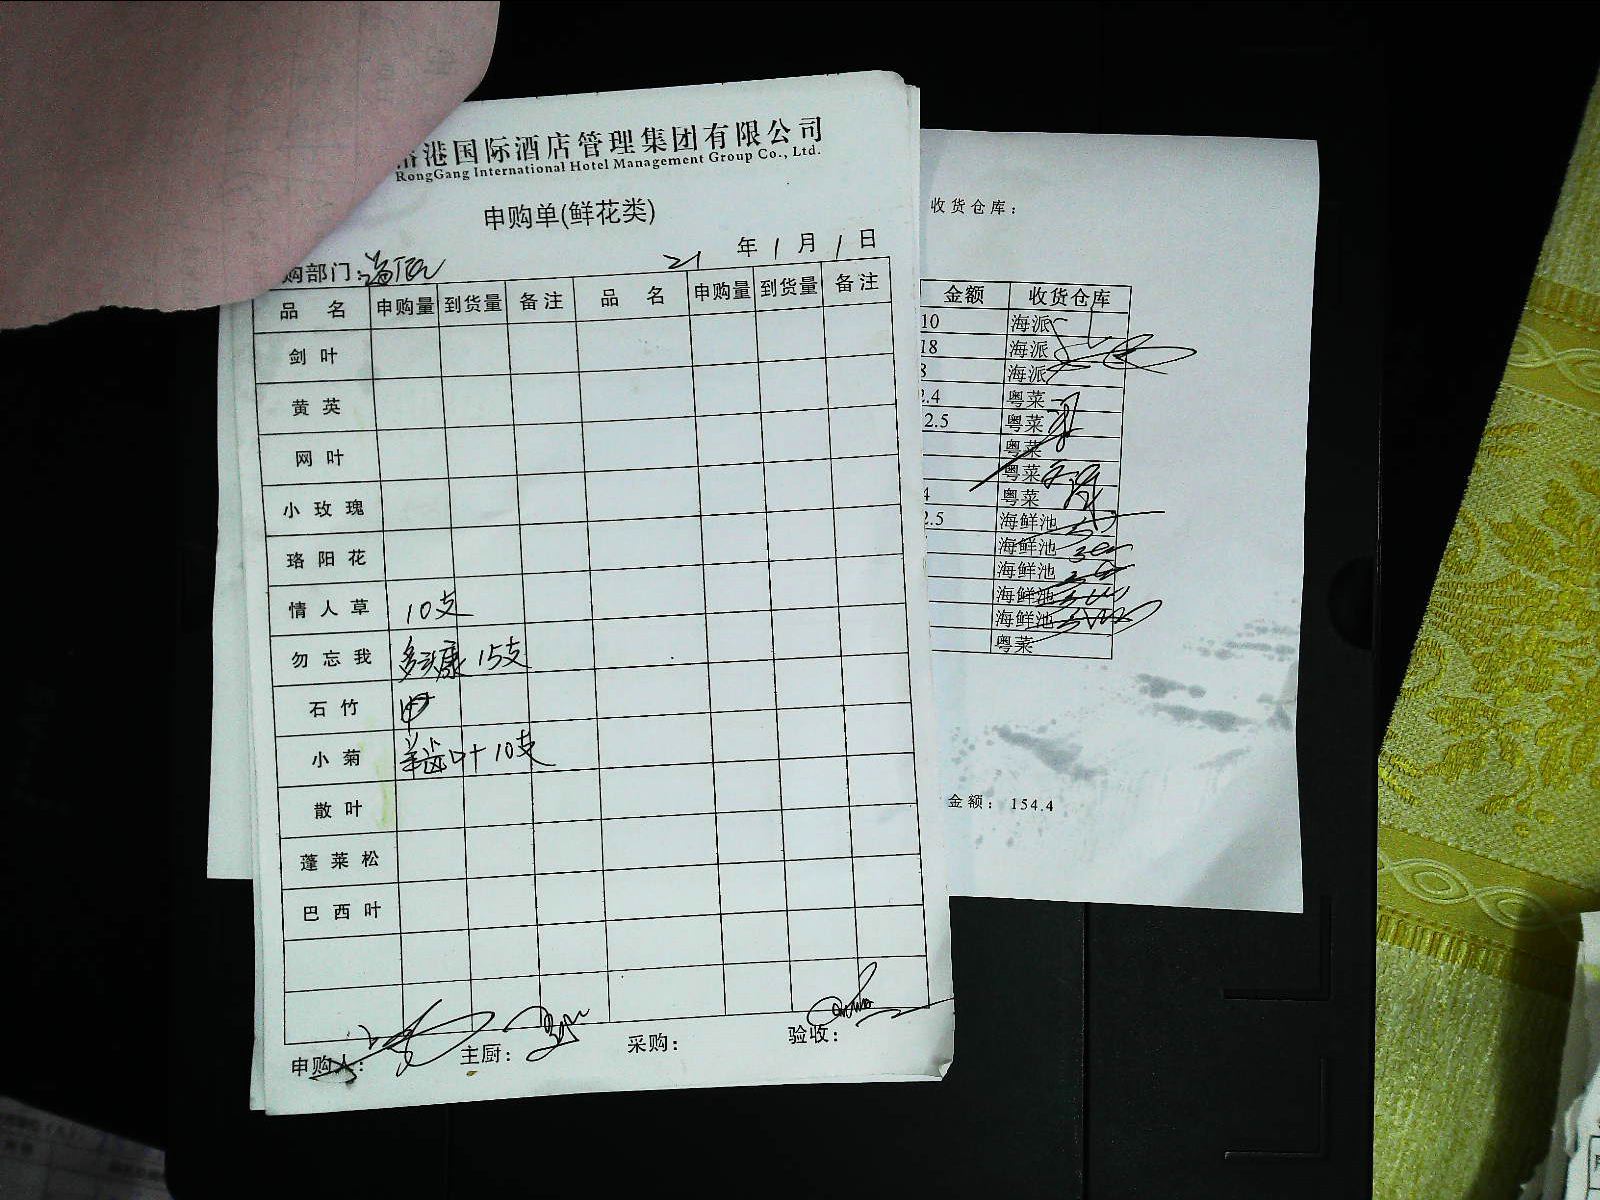 港国际酒店管理集团有限公司
RongGang International Hotel Management Group Co., Ltd.
申购单(鲜花类)
购部门: 21 年 1 月 1 日
品 名 申购量 到货量 备注 品 名 申购量 到货量 备注
剑 叶
黄 英
网 叶
小 玫 瑰
珞 阳 花
情 人 草 10支
勿 忘 我 多头康 15支
石 竹
小 菊 羊齿叶 10支
散 叶
蓬 莱 松
巴 西 叶
申购人: 主厨: 采购: 验收:
收货仓库:
金额 收货仓库
10 海派
18 海派
8 海派
2.4 粤菜
2.5 粤菜
粤菜
粤菜
4 粤菜
2.5 海鲜池
海鲜池
海鲜池
海鲜池
海鲜池
粤菜
金额: 154.4